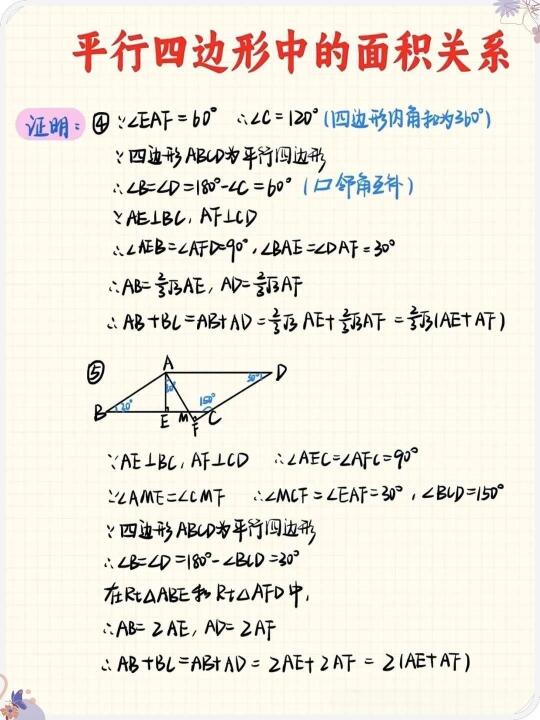 平行四边形中的面积关系
证明: ④ ∵∠EAF=60° ∴∠C=120°(四边形内角和为360°)
∵四边形ABCD为平行四边形
∴∠B=∠D=180°-∠C=60° (▱邻角互补)
∵AE⊥BC, AF⊥CD
∴∠AEB=∠AFD=90°, ∠BAE=∠DAF=30°
∴AB=2/3√3AE, AD=2/3√3AF
∴AB+BC=AB+AD=2/3√3AE+2/3√3AF=2/3√3(AE+AF)
⑤
A
D
30°
30°
150°
B
30°
E
M
C
F
∵AE⊥BC, AF⊥CD ∴∠AEC=∠AFC=90°
∵∠AME=∠CMF ∴∠MCF=∠EAF=30°, ∠BCD=150°
∵四边形ABCD为平行四边形
∴∠B=∠D=180°-∠BCD=30°
在Rt△ABE和Rt△AFD中,
∴AB=2AE, AD=2AF
∴AB+BC=AB+AD=2AE+2AF=2(AE+AF)